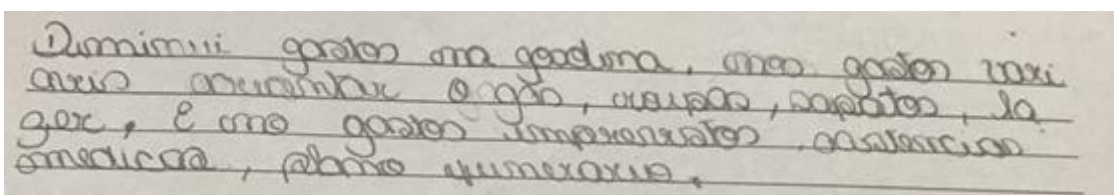 Dimimiui gastos ma gasolina, mos gastos vari
aveis acrecentar o gás, roupas, sapatos, la
zer, E mo gastos imprevistos assistencias
medicas, plano funerario.